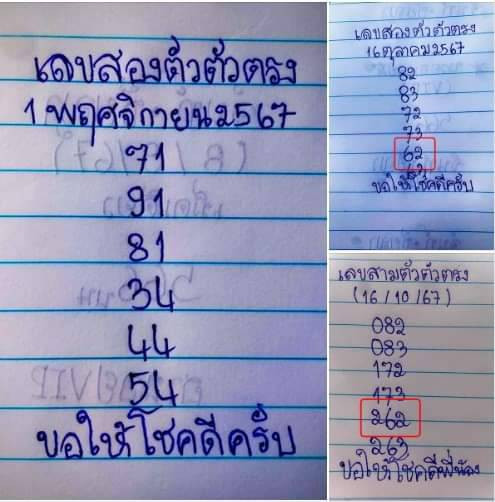 เลขสองตัวตัวตรง
1 พฤศจิกายน2567
71
91
81
34
44
54
ขอให้โชคดีครับ
เลขสองตัวตัวตรง
16ตุลาคม2567
82
83
72
73
62
63
ขอให้โชคดีครับ
เลขสามตัวตัวตรง
(16/10/67)
082
083
172
173
262
263
ขอให้โชคดีพี่น้อง